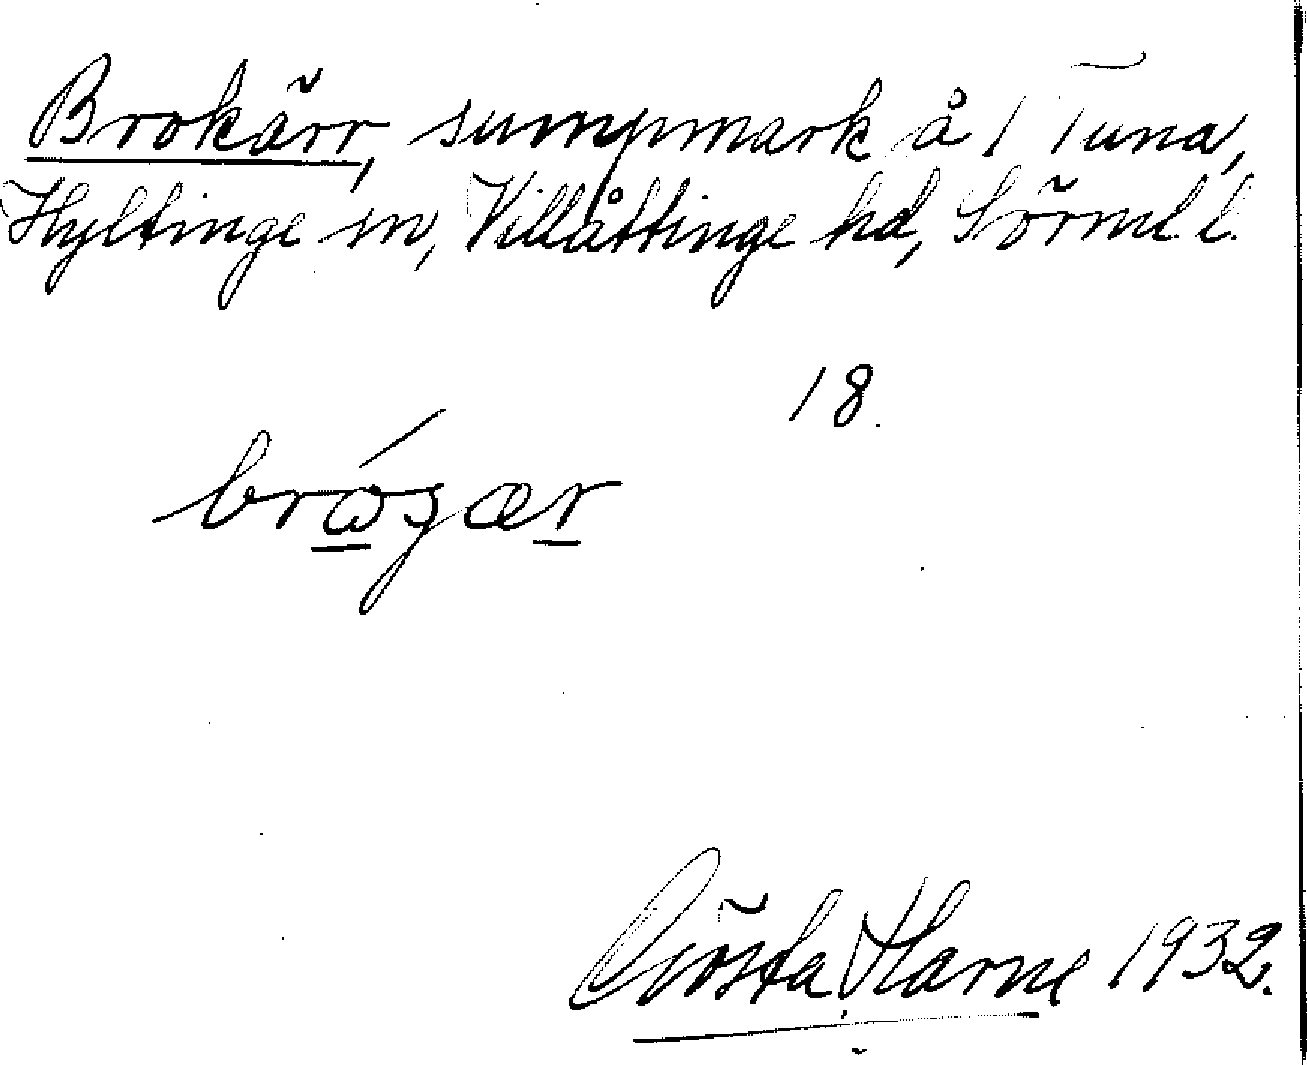 Brokärr, sumpmark å 1 Tuna,
Hyltinge sn, Villåttinge hd, Sörml l.
18.
Gösta Harne 1932.